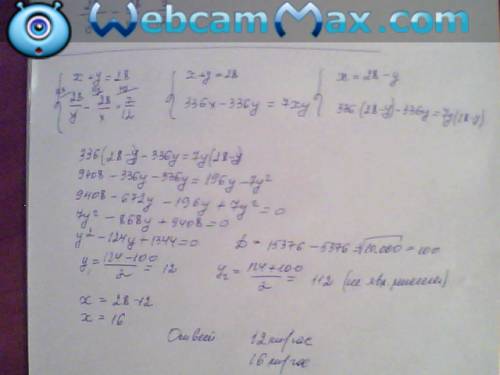 WebcamMax.com
x+y=28
28/y - 28/x = 7/12
x+y=28
336x-336y=7xy
x=28-y
336(28-y)-336y=7y(28-y)
336(28-y)-336y=7y(28-y)
9408-336y-336y=196y-7y²
9408-672y-196y+7y²=0
7y²-868y+9408=0
y²-124y+1344=0 D=15376-5376=√10.000=100
y₁=(124-100)/2=12 y₂=(124+100)/2=112 (не явл. решением)
x=28-12
x=16
Ответ 12км/час
16км/час